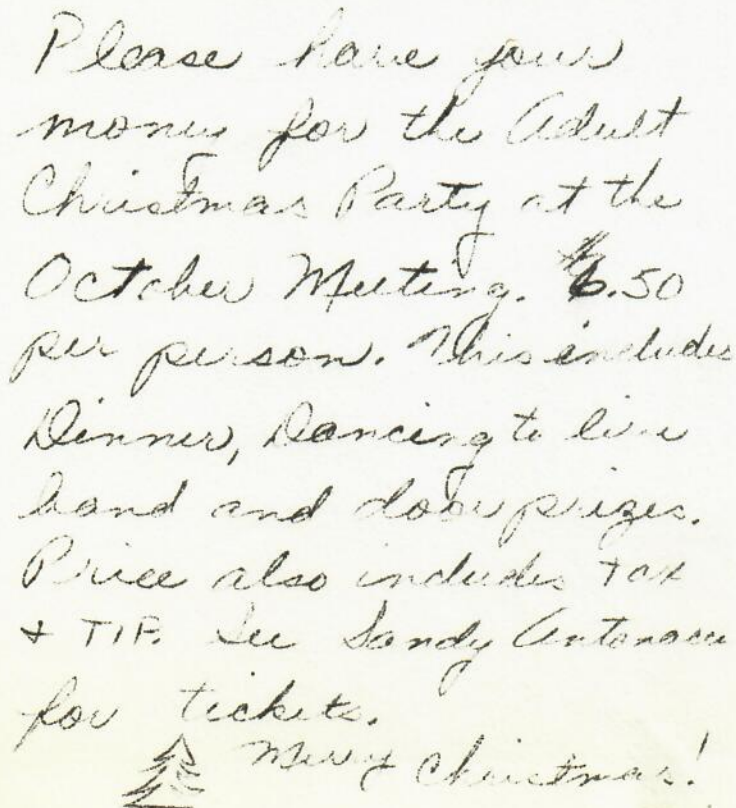 Please have your
money for the Adult
Christmas Party at the
October Meeting. $6.50
per person. This includes
Dinner, Dancing to live
band and door prizes.
Price also includes Tax
+ TIP. See Sandy
for tickets.
Merry Christmas!